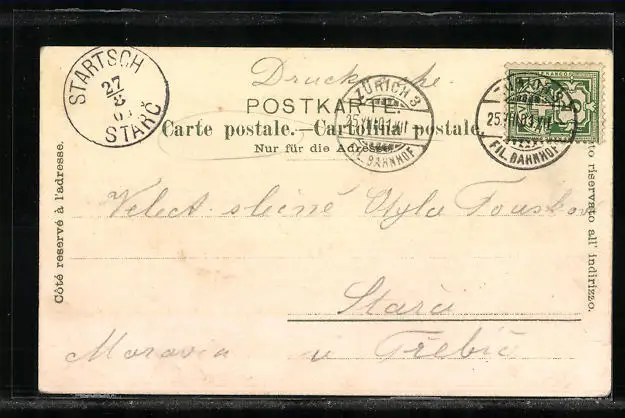 STARTSCH
27
8
STARČ
Drucksache.
ZÜRICH 3
25.VIII.01
FIL. BAHNHOF
FRANCO
25.VIII.01
FIL. BAHNHOF
POSTKARTE.
Carte postale.—Cartolina postale.
Nur für die Adresse.
Côté reservé à l'adresse.
riservato all' indirizzo.
Velect. slečně
Starč
Moravia u Třebíč